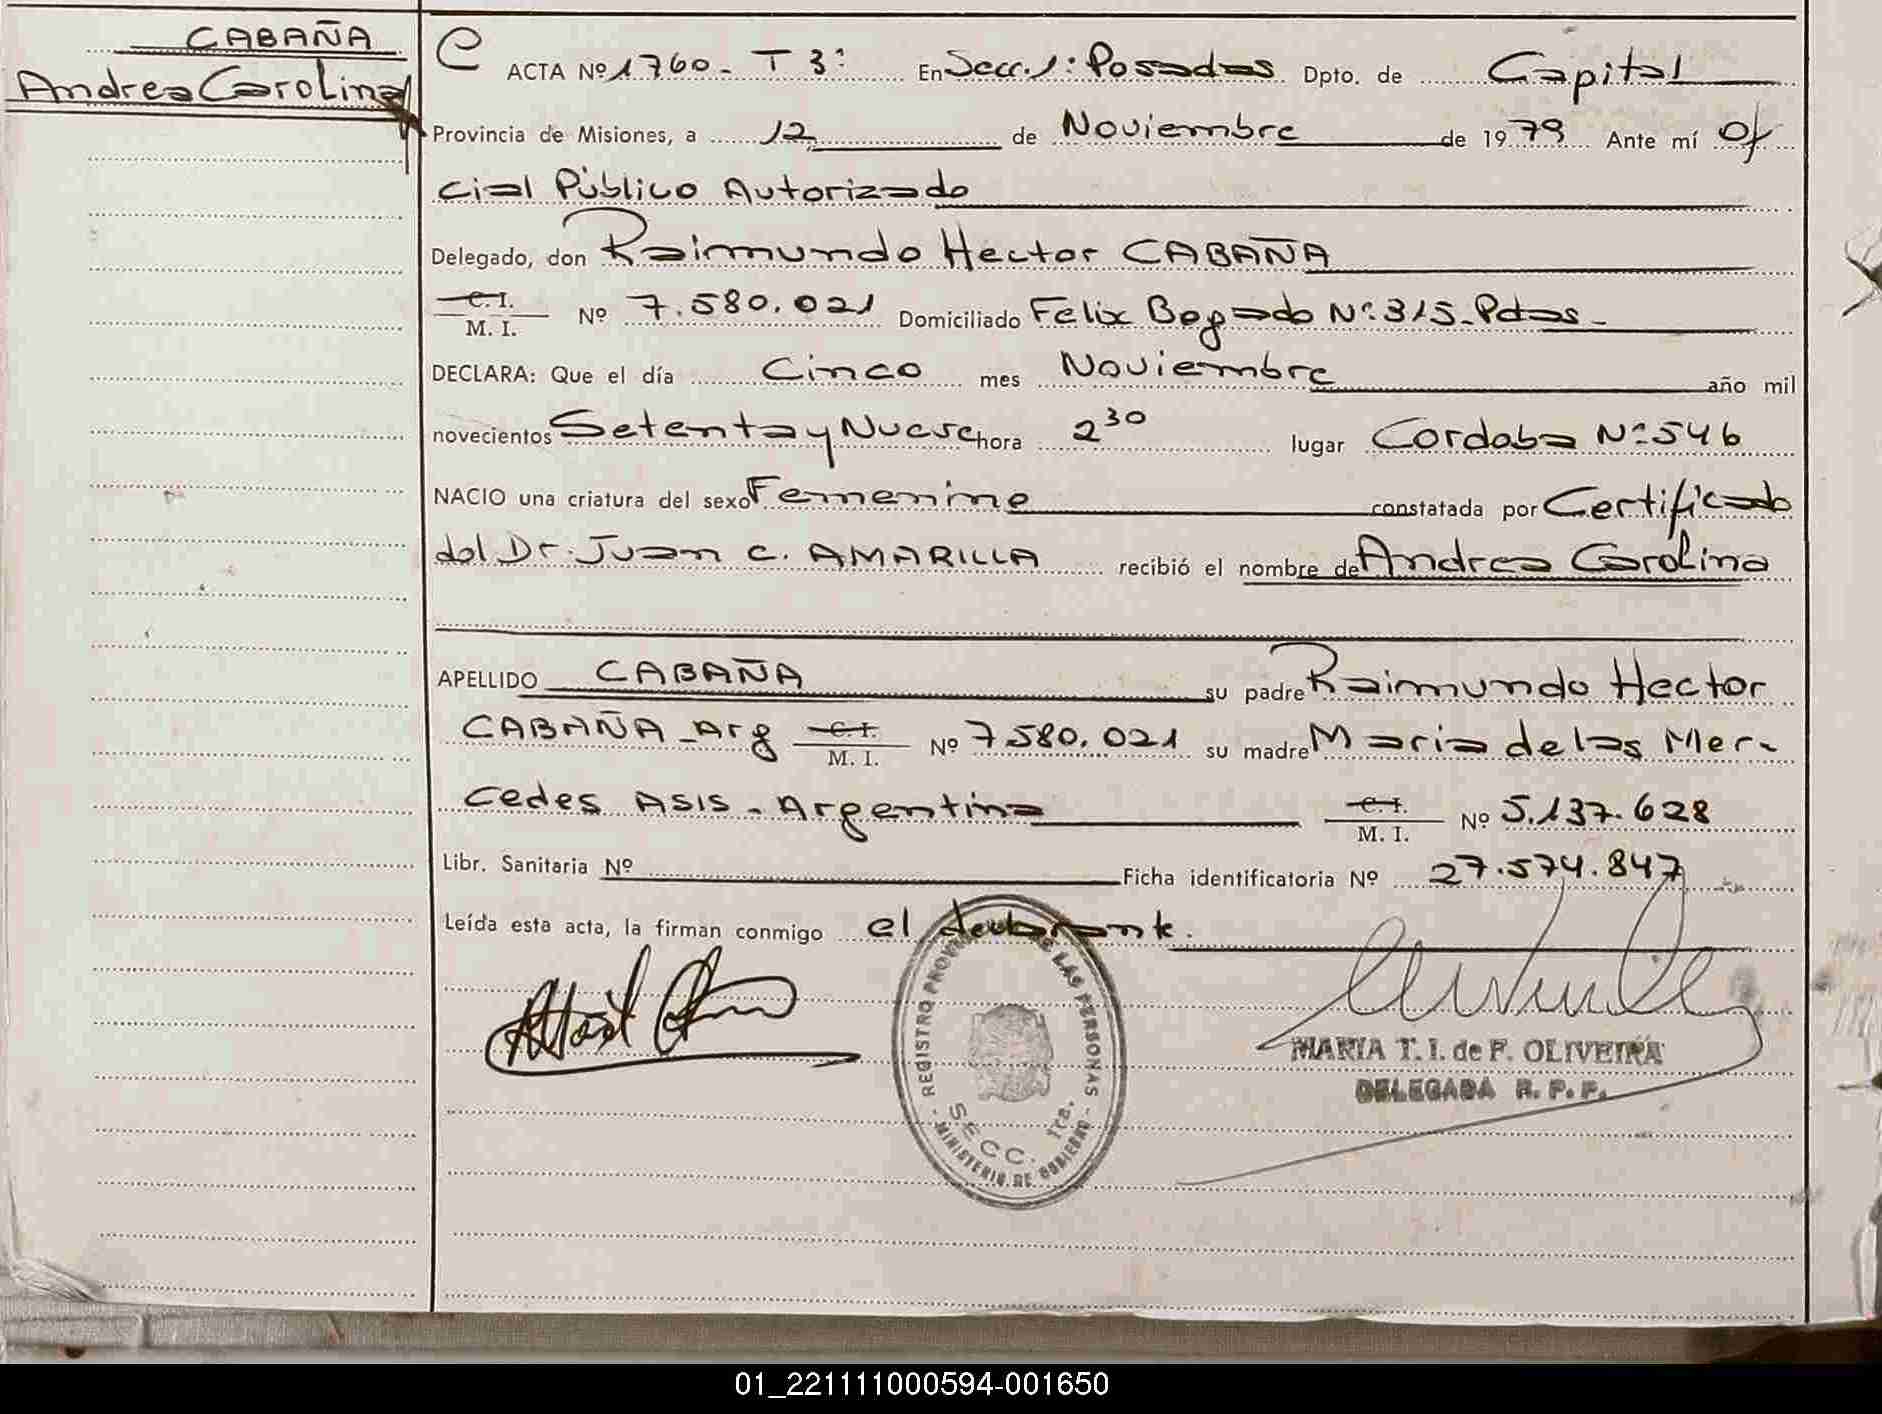 CABAÑA
Andrea Carolina
C ACTA Nº 1760 - T 3º En Secc. 1: Posadas Dpto. de Capital
Provincia de Misiones, a 12 de Noviembre de 1979 Ante mí Ofi
cial Público Autorizado
Delegado, don Raimundo Hector CABAÑA
C. I.
M. I. Nº 7.580.021 Domiciliado Felix Bogado Nº 315 - Pdas -
DECLARA: Que el día Cinco mes Noviembre año mil
novecientos Setenta y Nueve hora 2 30 lugar Cordoba Nº 546
NACIO una criatura del sexo Femenino constatada por Certificado
del Dr. Juan C. AMARILLA recibió el nombre de Andrea Carolina
APELLIDO CABAÑA su padre Raimundo Hector
CABAÑA - Arg C. I. M. I. Nº 7.580.021 su madre Maria de las Mer-
cedes ASIS - Argentina C. I. M. I. Nº 5.137.628
Libr. Sanitaria Nº Ficha identificatoria Nº 27.574.847
Leída esta acta, la firman conmigo el declarante.
REGISTRO PROVINCIAL DE LAS PERSONAS
SECC. 1ra.
- MINISTERIO DE GOBIERNO -
MARIA T. I. de F. OLIVEIRA
DELEGADA R. P. P.
01_221111000594-001650